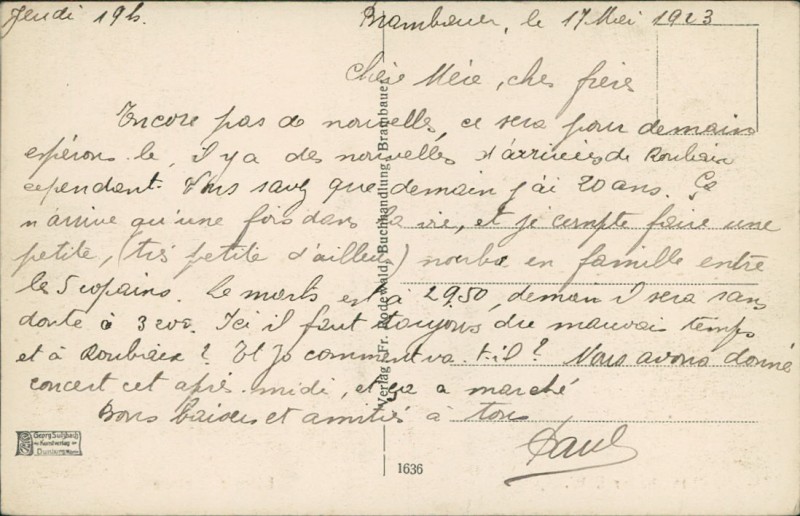 Jeudi 19h. Brambauer, le 17 Mai 1923
Chère Mère, cher frère
Encore pas de nouvelles, ce sera pour demain
espérons-le, il y a des nouvelles d'arrivées de Roubaix
cependant. Vous savez que demain j'ai 20 ans. Ça
n'arrive qu'une fois dans la vie, et je compte faire une
petite, (très petite d'ailleurs) nouba en famille entre
les 5 copains. Le mark est à 2950, demain il sera sans
doute à 3000. Ici il fait toujours du mauvais temps
et à Roubaix ? Et Jo comment va-t-il ? Nous avons donné
concert cet après-midi, et ça a marché
Bons baisers et amitiés à tous
Paul
Verlag Fr. Rodewald, Buchhandlung, Brambauer
Georg Sulzbach
Kunstverlag
1636